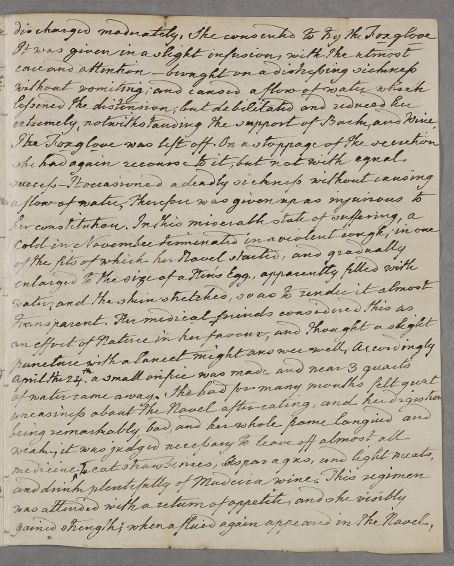 discharged moderately, She consented to try the Foxglove
It was given in a slight infusion, with the utmost
care and attention — brought on a distressing sickness
without vomiting; and caused a flow of water which
lessened the distension; but debilitated and reduced her
extremely, notwithstanding the support of Bark and Wine
The Foxglove was left off. On a stoppage of the secretion
she had again recourse to it, but not with equal
success — It occasioned a deadly sickness without causing
a flow of water, therefore was given up as injurious to
her constitution. In this miserable state of suffering, a
cold in November terminated in a violent cough, in one
of the fits of which her Navel started, and gradually
enlarged to the size of a Hens Egg, apparently filled with
water, and the skin stretched, so as to render it almost
transparent. Her medical friends considered this as
an effort of Nature in her favour, and thought a slight
puncture with a lancet might answer well, Accordingly
April the 24th a small orifice was made and near 3 quarts
of water came away. She had for many months felt great
uneasiness about the Navel after eating, and her digestion
being remarkably bad, and her whole frame languid and
weak, it was judged necessary to leave off almost all
medicine, to eat strawberries, Asparagus, and light meats,
and drink plentifully of Madeira wine. This regimen
was attended with a return of appetite, and she visibly
gained strength; when a fluid again appeared in the Navel,